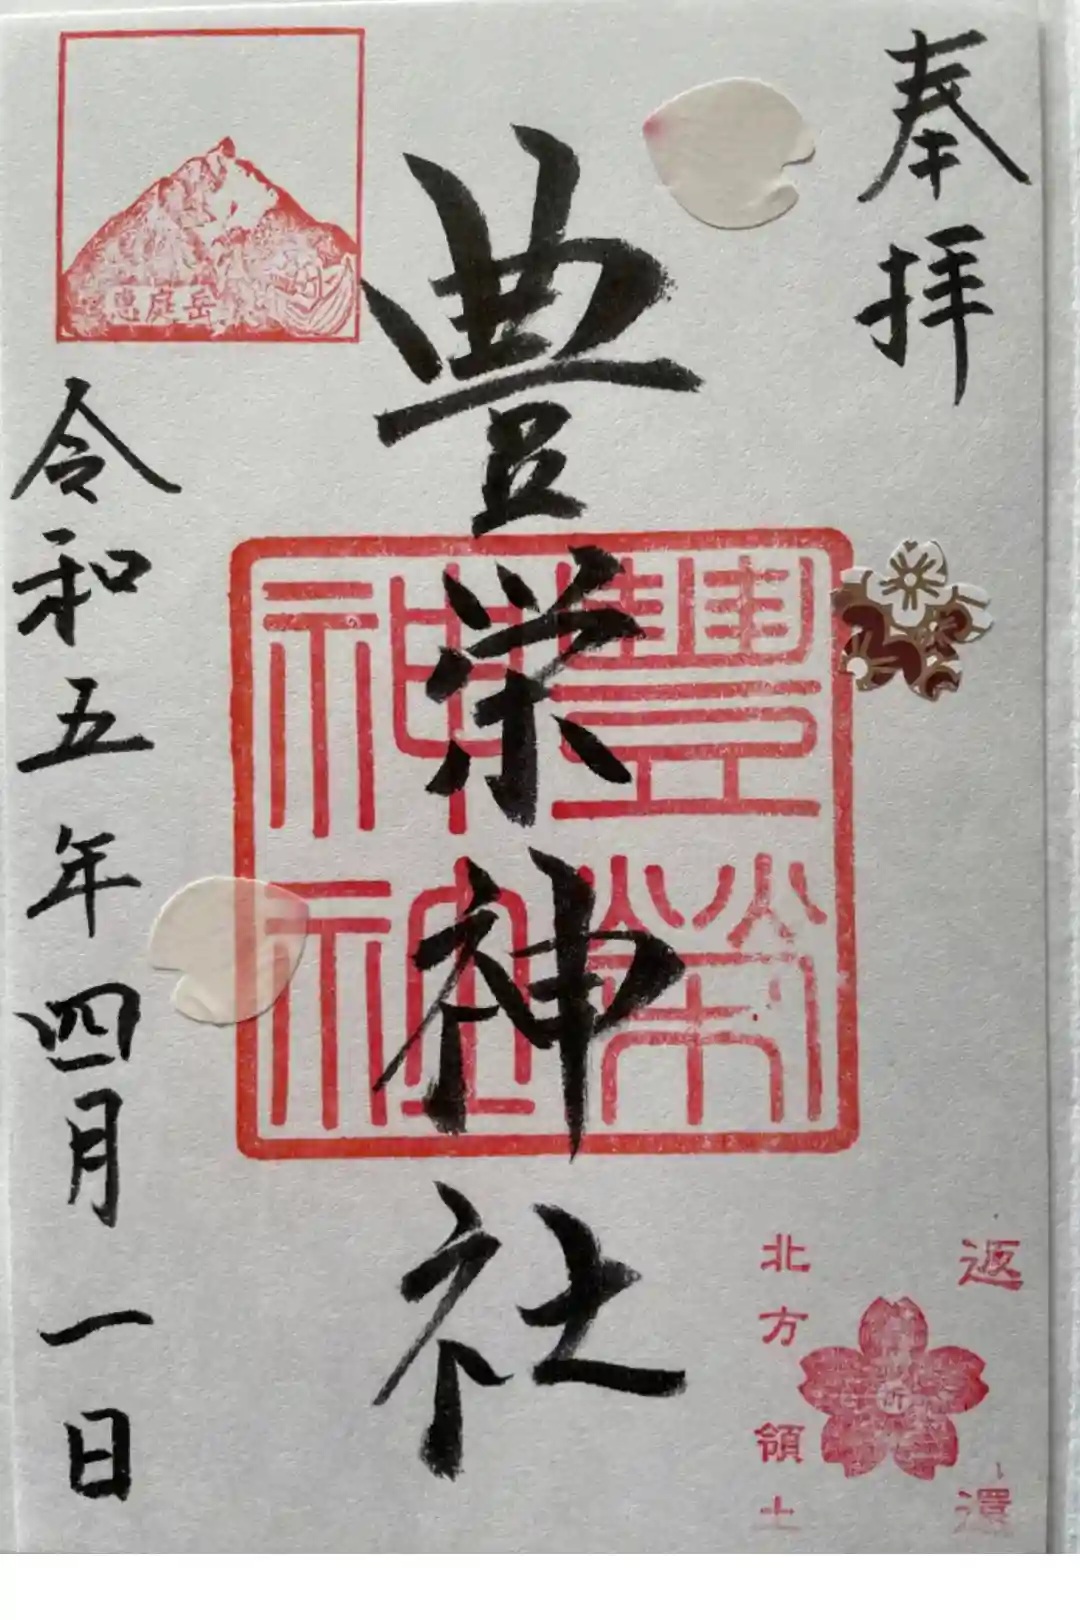 奉拝
豊栄神社
豐榮
神社
令和五年四月一日
恵庭岳
返還
祈
北方領土